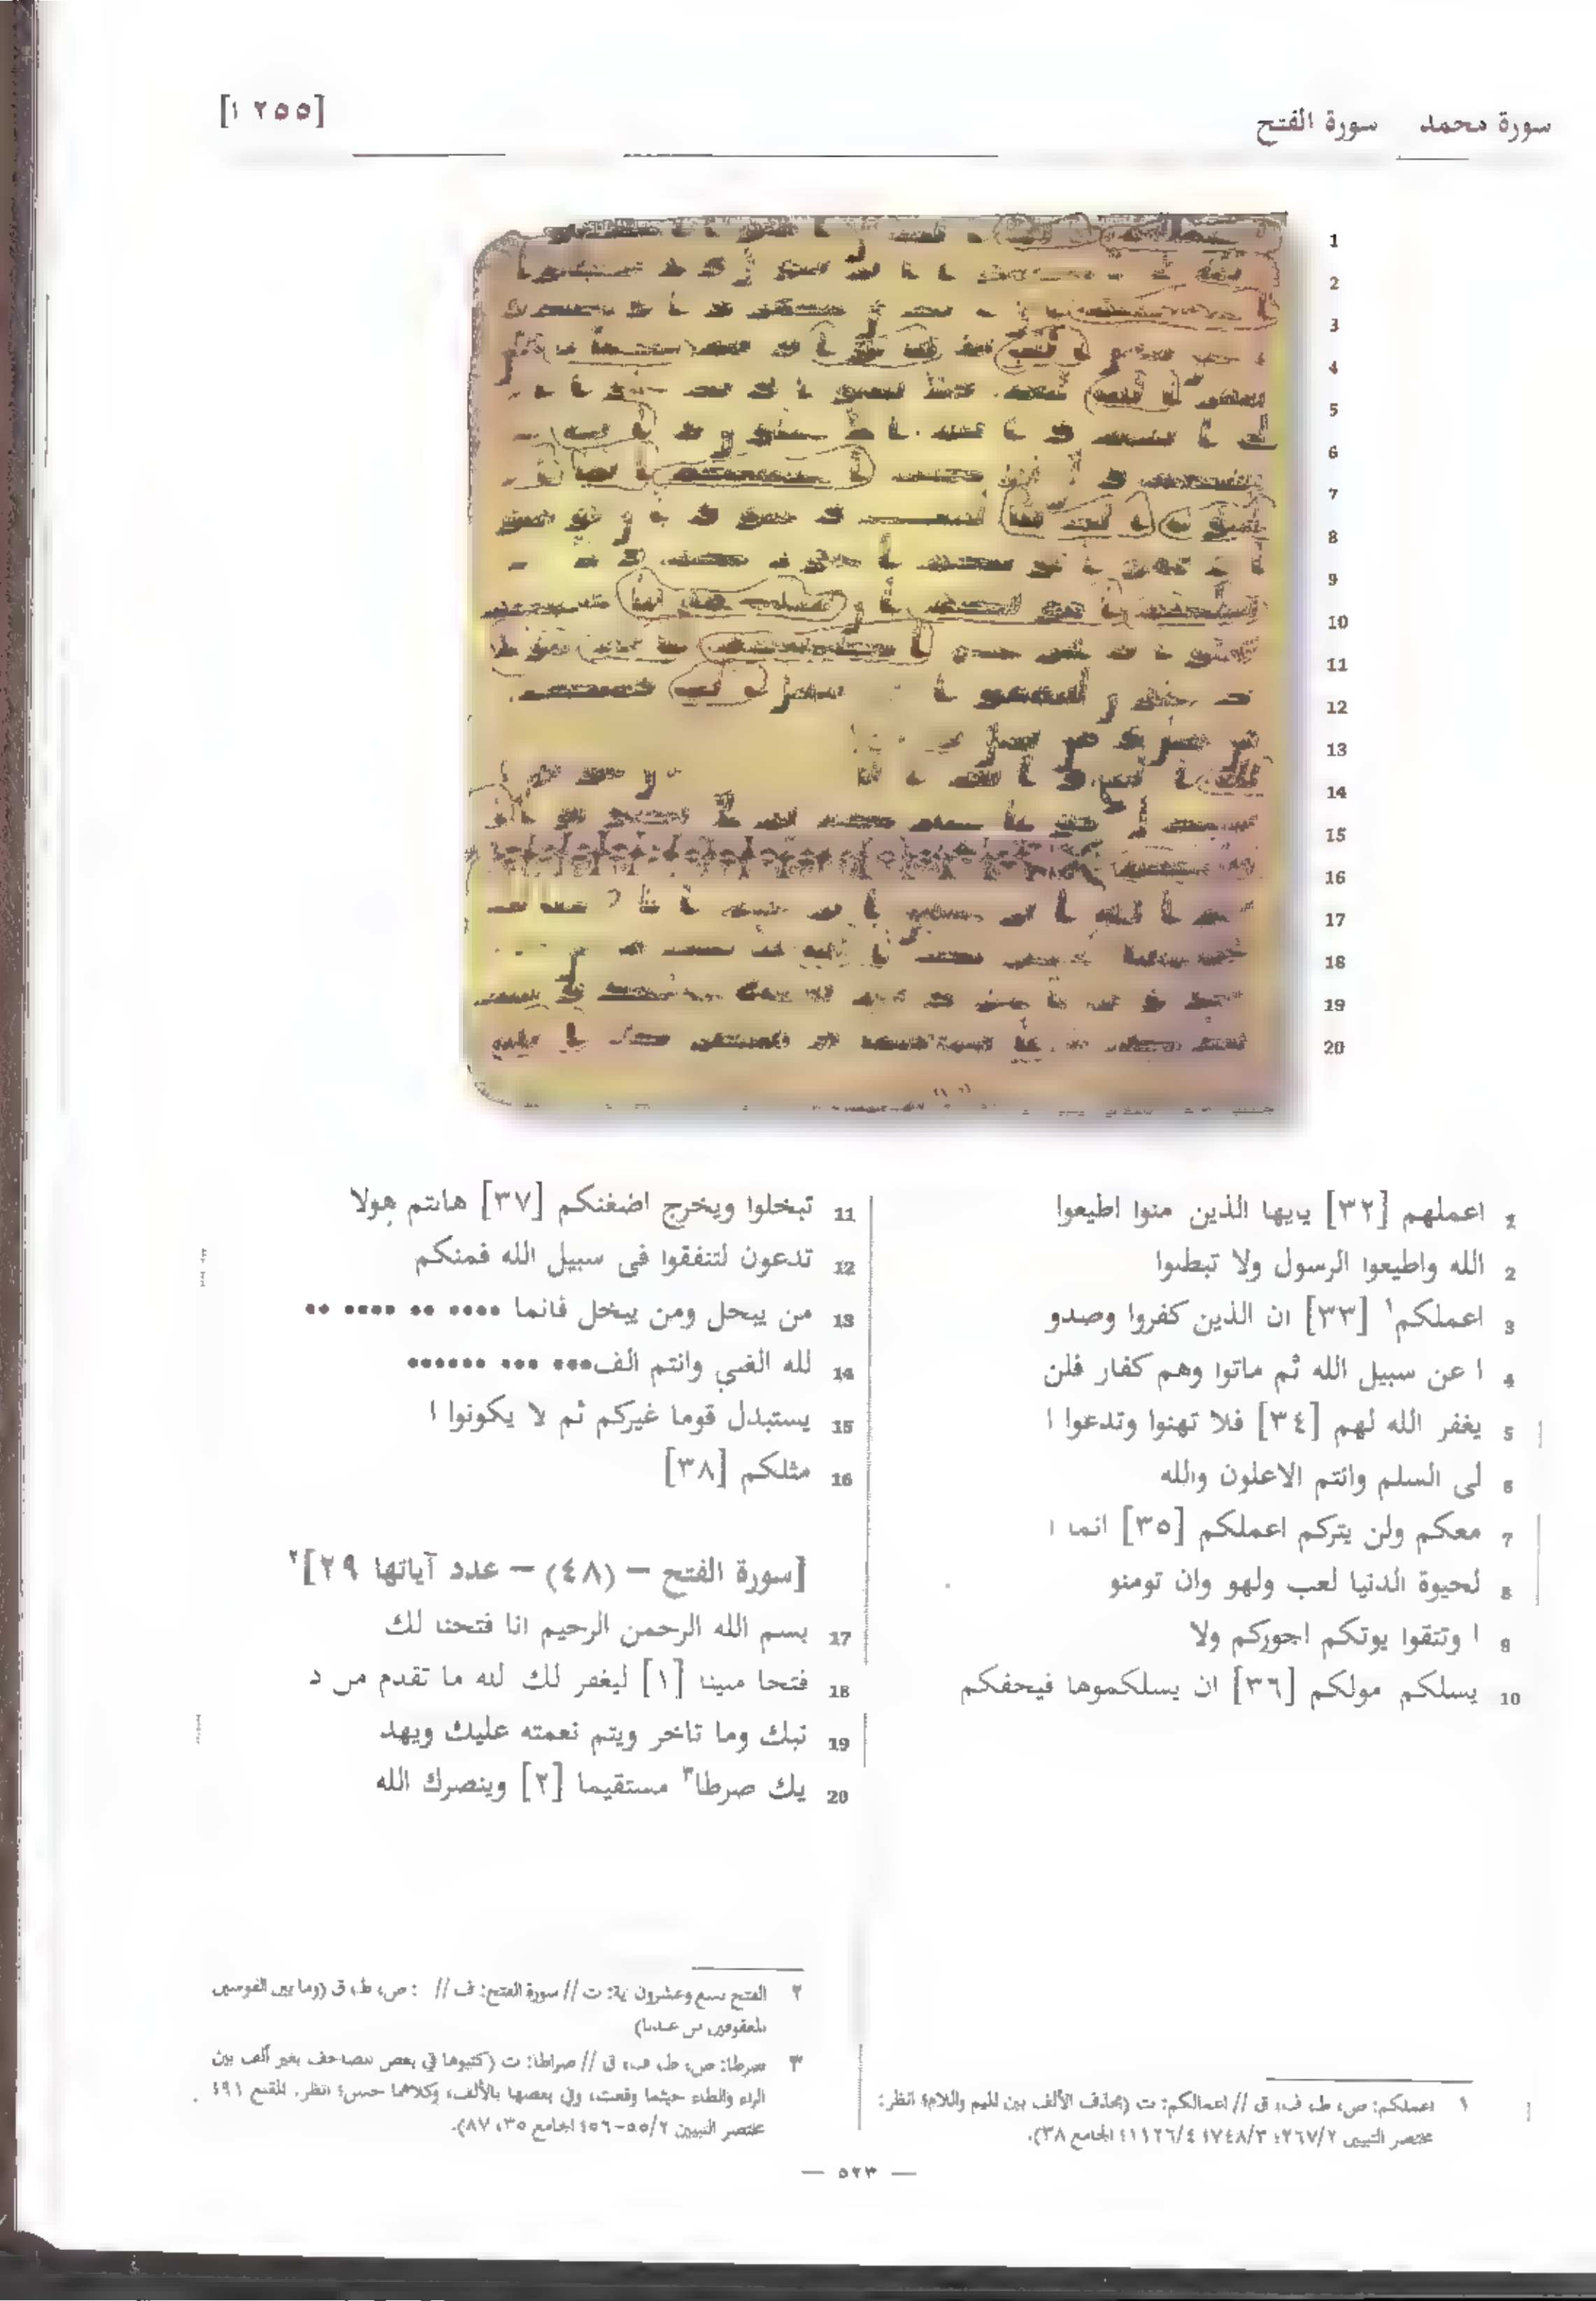 سورة محمد سورة الفتح
[٢٥٥ ١]
1
2
3
4
5
6
7
8
9
10
11
12
13
14
15
16
17
18
19
20
1 اعملهم [٣٢] يايها الذين منوا اطيعوا
2 الله واطيعوا الرسول ولا تبطلوا
3 اعملكم١ [٣٣] ان الذين كفروا وصدو
4 ا عن سبيل الله ثم ماتوا وهم كفار فلن
5 يغفر الله لهم [٣٤] فلا تهنوا وتدعوا ا
6 لى السلم وانتم الاعلون والله
7 معكم ولن يتركم اعملكم [٣٥] انما ا
8 لحيوة الدنيا لعب ولهو وان تومنو
9 ا وتتقوا يوتكم اجوركم ولا
10 يسلكم مولكم [٣٦] ان يسلكموها فيحفكم
11 تبخلوا ويخرج اضغنكم [٣٧] هانتم هولا
12 تدعون لتنفقوا فى سبيل الله فمنكم
13 من يبخل ومن يبخل فانما •••• •• •••• ••
14 لله الغني وانتم الف••• ••• ••••••
15 يستبدل قوما غيركم ثم لا يكونوا ا
16 مثلكم [٣٨]
[سورة الفتح – (٤٨) – عدد آياتها ٢٩]٢
17 بسم الله الرحمن الرحيم انا فتحنا لك
18 فتحا مبينا [١] ليغفر لك لله ما تقدم من ذ
19 نبك وما تاخر ويتم نعمته عليك ويهد
20 يك صرطا٣ مستقيما [٢] وينصرك الله
١ اعملكم: ص، ط، ف، ق // اعمالكم: ت (بحذف الألف بين الميم واللام؛ انظر:
مختصر التبيين ٢٦٧/٢؛ ٧٤٨/٣؛ ١١٢٦/٤؛ الجامع ٣٨).
٢ الفتح تسع وعشرون آية: ت // سورة الفتح: ف // : ص، ط، ق (وما بين القوسين
المعقوفين من عندنا)
٣ صرطا: ص، ط، ف، ق // صراطا: ت (كتبوها في بعض المصاحف بغير ألف بين
الراء والطاء حيثما وقعت، وفي بعضها بالألف، وكلاهما حسن؛ انظر. المقنع ٩١؛
مختصر التبيين ٥٥/٢-٥٦؛ الجامع ٣٥، ٨٧).
— ٥٢٣ —